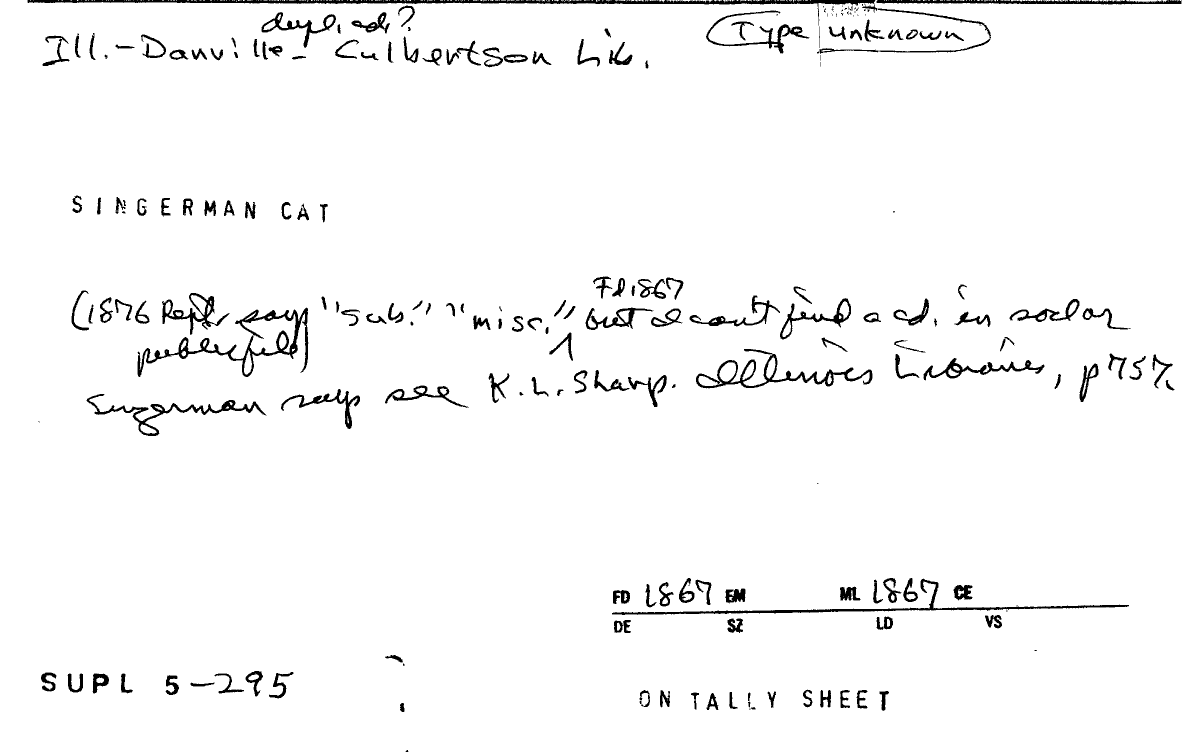 dupl. cd.?
Ill.-Danville- Culbertson Lib.
Type unknown
SINGERMAN CAT
Fd 1867
(1876 Rept. says "sub." "misc." but I can't find a cd. in soc lor
public file)
Singerman says see K.L. Sharp. Illinois Libraries, p 757.
FD 1867 EM ML 1867 CE
DE SZ LD VS
SUPL 5-295
ON TALLY SHEET